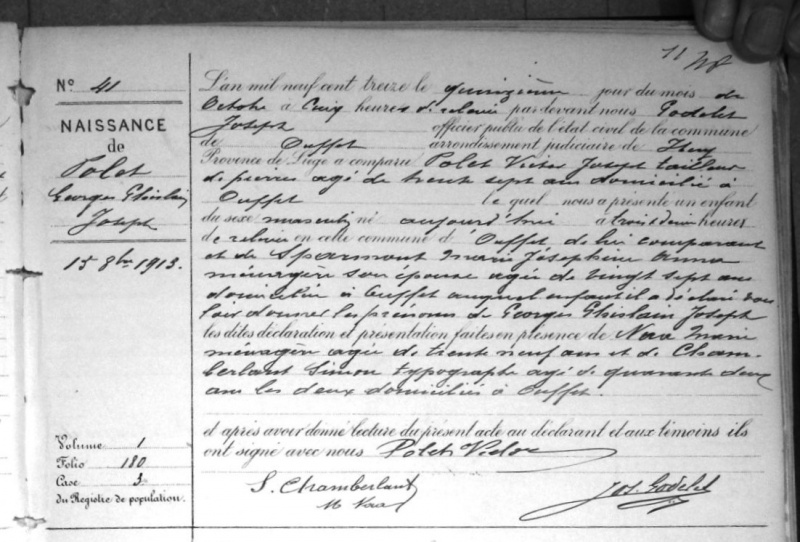 11
Nº 41
NAISSANCE
de
Polet
Georges Ghislain
Joseph
15 8bre 1913.
L'an mil neuf cent treize le quinzième jour du mois de
Octobre à Cinq heures de relevée par devant nous Godelet
Joseph officier public de l'état civil de la commune
de Ouffet arrondissement judiciaire de Huy
Province de Liége a comparu Polet Victor Joseph tailleur
de pierres agé de trente sept ans domicilié à
Ouffet lequel nous a présenté un enfant
du sexe masculin né aujourd'hui à trois heures
de relevée en cette commune d'Ouffet de lui comparant
et de Sparmont Marie Joséphine Anna
ménagère son épouse agée de vingt sept ans
domiciliée à Ouffet auquel enfant il a déclaré vou
loir donner les prénoms de Georges Ghislain Joseph
les dites déclaration et présentation faites en présence de Marie
ménagère agée de trente neuf ans et de Cham-
berlant Simon typographe agé de quarante deux
ans les deux domiciliés à Ouffet.
et après avoir donné lecture du présent acte au déclarant et aux témoins ils
ont signé avec nous Polet Victor
S. Chamberlant
M
Jos. Godelet
Volume 1
Folio 180
Case 3.
du Registre de population.